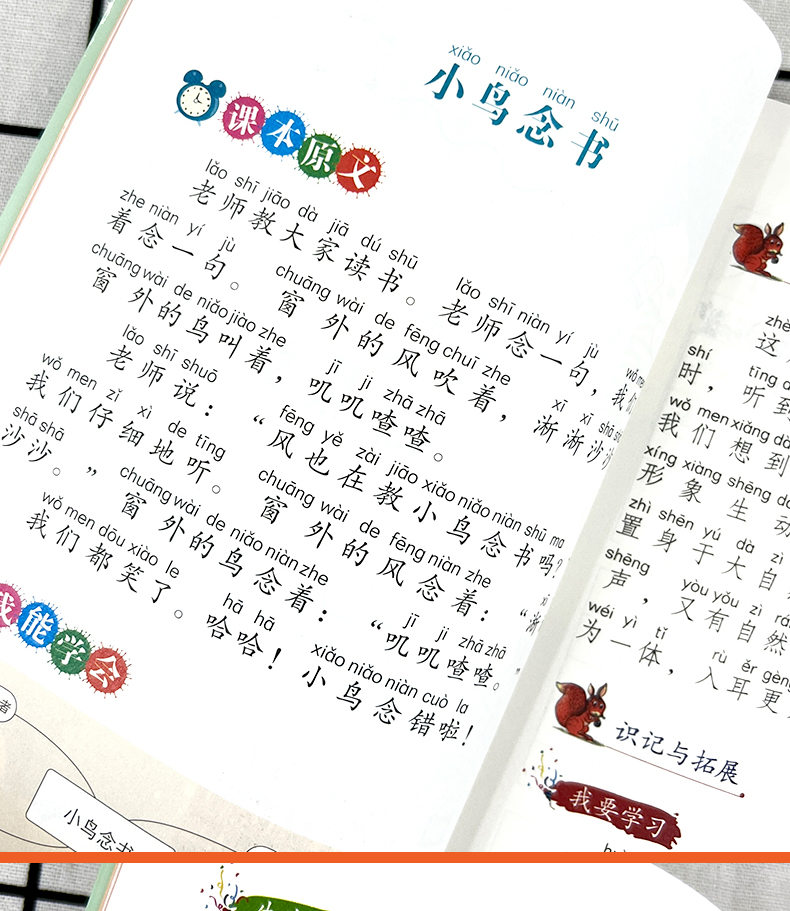 xiǎo niǎo niàn shū
小鸟念书
课本原文
lǎo shī jiāo dà jiā dú shū lǎo shī niàn yí jù wǒ men
老师教大家读书。老师念一句，我们
zhe niàn yí jù chuāng wài de fēng chuī zhe xī xī shā
着念一句。窗外的风吹着，淅淅沙沙
chuāng wài de niǎo jiào zhe jī ji zhā zhā
窗外的鸟叫着，叽叽喳喳。
lǎo shī shuō fēng yě zài jiāo xiǎo niǎo niàn shū ma
老师说：“风也在教小鸟念书吗？
wǒ men zǐ xì de tīng chuāng wài de fēng niàn zhe
我们仔细地听。窗外的风念着：“淅
shā shā chuāng wài de niǎo niàn zhe jī ji zhā zhā
沙沙。”窗外的鸟念着：“叽叽喳喳。”
wǒ men dōu xiào le hā hā xiǎo niǎo niàn cuò la
我们都笑了。哈哈！小鸟念错啦！
我能学会
者
小鸟念书
这
shí tīng d
时，听到
wǒ men xiǎng dà
我们想到
xíng xiàng shēng dò
形象生动
zhì shēn yú dà zì
置身于大自
shēng yòu yǒu zì rá
声，又有自然
wéi yì tǐ rù ěr gèng
为一体，入耳更
识记与拓展
我要学习